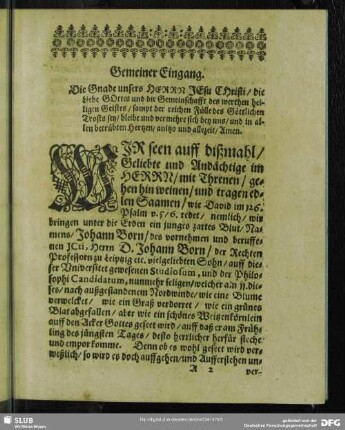 Gemeiner Eingang.
Die Gnade unsers HERRN JEsu CHristi / die
Liebe GOttes und die Gemeinschafft des werthen hei-
ligen Geistes / sampt der reichen Fülle des Göttlichen
Trosts sey / bleibe und vermehre sich bey uns / und in al-
len betrübten Hertzen / anitzo und allezeit / Amen.
WIR seen auff dißmahl /
Geliebte und Andächtige im
HERRN / mit Threnen / ge-
hen hin weinen / und tragen ed-
len Saamen / wie David im 126.
Psalm v. 5/6. redet / nemlich / wir
bringen unter die Erden ein junges zartes Blut / Na-
mens / Johann Born / des vornehmen und beruffe-
nen JCti, Herrn D. Johann Born / der Rechten
Professorn zu Leipzig etc. vielgeliebten Sohn / auff die-
ser Universitet gewesenen Studiosum, und der Philo-
sophi Candidatum, nunmehr seligen / welcher am 11. die-
ses / nach außgestandenem Nordwinde / wie eine Blume
verwelcket / wie ein Graß verdorret / wie ein grünes
Blat abgefallen / aber wie ein schönes Weitzenkörnlein
auff den Acker Gottes geseet wird / auff daß er am Früh-
ling des jüngsten Tages / desto herrlicher herfür steche
und empor komme. Denn ob es wohl geseet wird ver-
weßlich / so wird es doch auffgehen / und Aufferstehen un-
A 2 ver-
SLUB
Wir führen Wissen.
gefördert von der
Deutschen Forschungsgemeinschaft
DFG